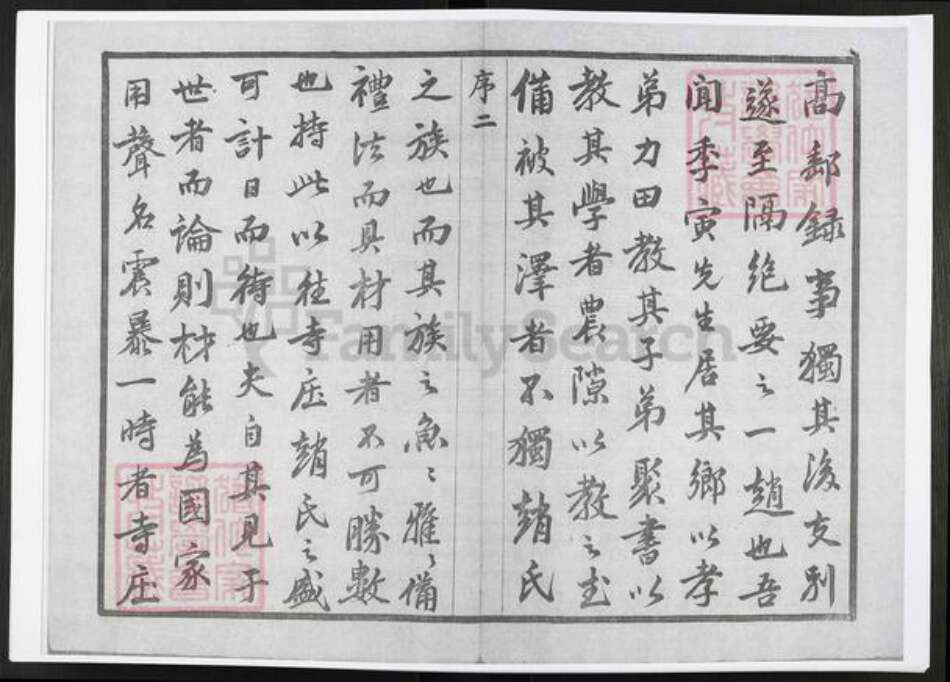 高郵錄事獨其後支別
遂至隔絶要之一趙也吾
聞季寅先生居其鄉以孝
弟力田教其子弟聚書以
教其學者農隙以教之
備被其澤者不獨趙氏
序二
之族也而其族之魚〻雅〻備
禮法而具材用者不可勝數
也持此以往寺庄趙氏之盛
可計日而待也夫自其見于
世者而論則材能為國家
用聲名震暴一時者寺庄
FamilySearch